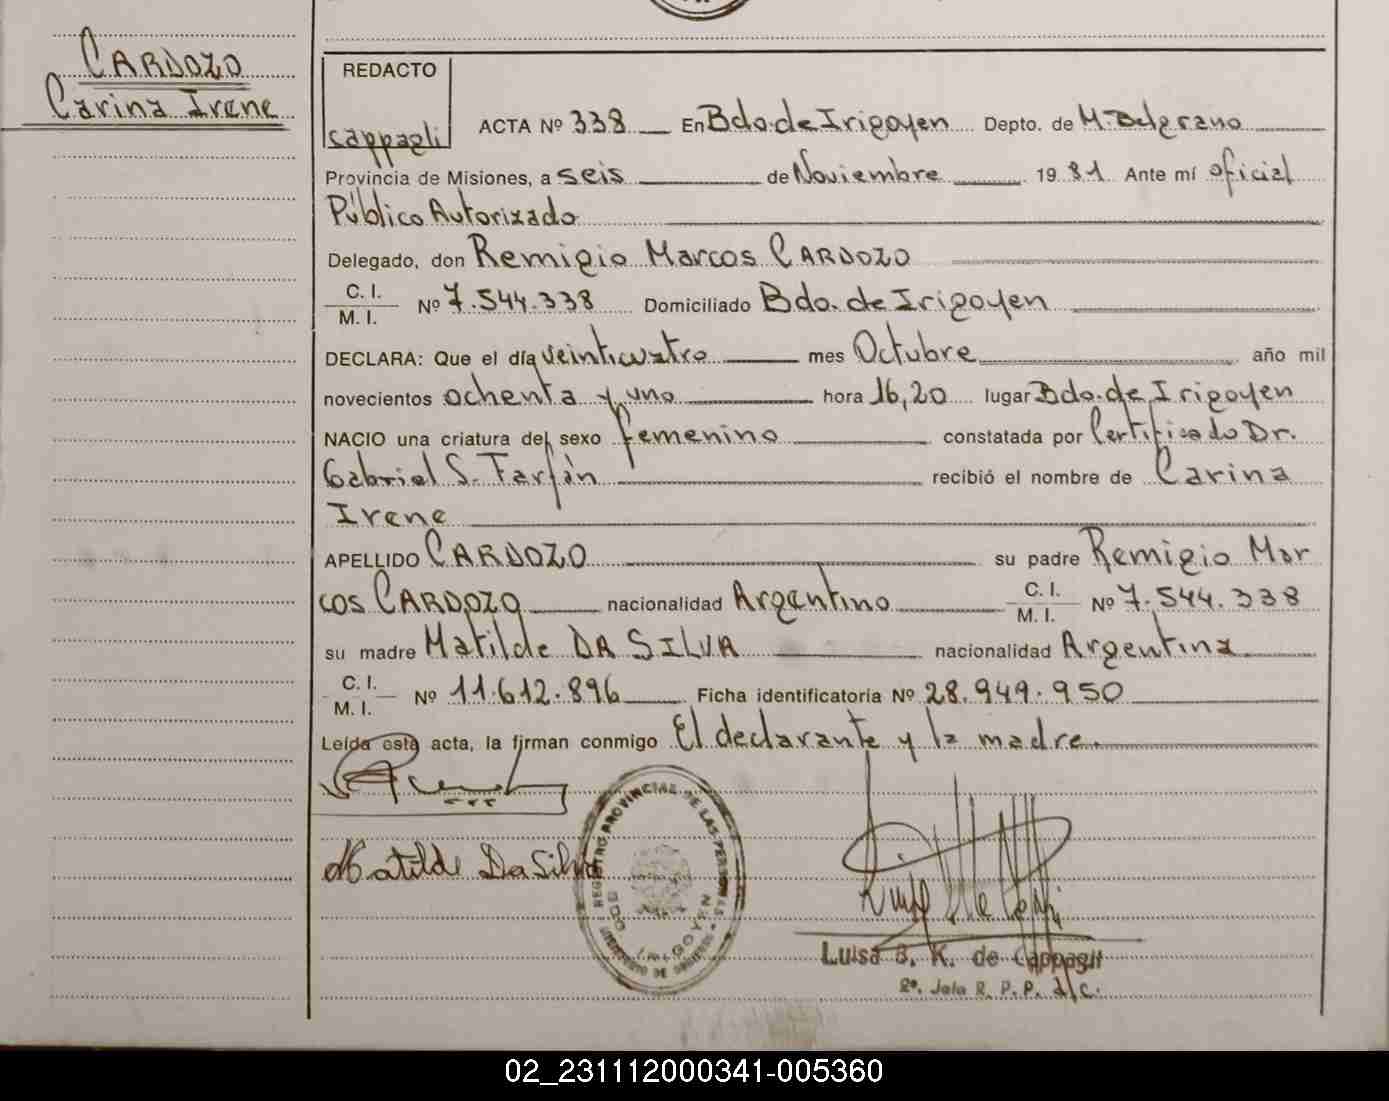 CARDOZO
Carina Irene
REDACTO
Cappagli
ACTA Nº 338 En Bdo. de Irigoyen Depto. de M. Belgrano
Provincia de Misiones, a seis de Noviembre 1981 Ante mí oficial
Público Autorizado
Delegado, don Remigio Marcos CARDOZO
C. I.
M. I. Nº 7.544.338 Domiciliado Bdo. de Irigoyen
DECLARA: Que el día veinticuatro mes Octubre año mil
novecientos ochenta y uno hora 16,20 lugar Bdo. de Irigoyen
NACIO una criatura del sexo femenino constatada por Certificado Dr.
Gabriel S. Farfán recibió el nombre de Carina
Irene
APELLIDO CARDOZO su padre Remigio Mar
cos CARDOZO nacionalidad Argentino C. I. M. I. Nº 7.544.338
su madre Matilde DA SILVA nacionalidad Argentina
C. I.
M. I. Nº 11.612.896 Ficha identificatoria Nº 28.949.950
Leída esta acta, la firman conmigo El declarante y la madre.
Matilde Da Silva
REGISTRO PROVINCIAL DE LAS PERSONAS
BDO IRIGOYEN
Luisa B. K. de Cappagli
2º. Jefa R. P. P. a/c.
02_231112000341-005360